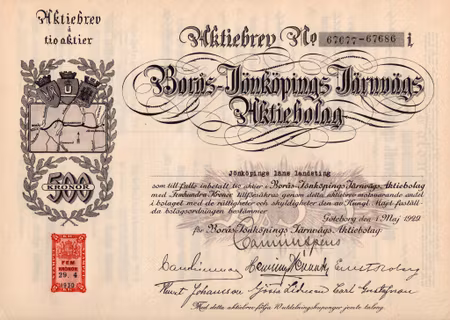 Aktiebrev
å
tio aktier
500
KRONOR
FEM
KRONOR
29. 4
1930
Aktiebrev No 67677-67686 i
Borås-Jönköpings Järnvägs
Aktiebolag
Jönköpings läns landsting
som till fullo inbetalt tio aktier i Borås-Jönköpings Järnvägs Aktiebolag
med Femhundra Kronor tillförsäkras genom detta aktiebrev motsvarande andel
i bolaget med de rättigheter och skyldigheter den av Kungl. Maj:t faställ-
da bolagsordningen bestämmer
Göteborg den 1 Maj 1929
för Borås-Jönköpings Järnvägs Aktiebolag:
Knut Johansson Gösta Lidman Carl Gustafsson
Med detta aktiebrev följa 10 utdelningskuponger jemte talong.